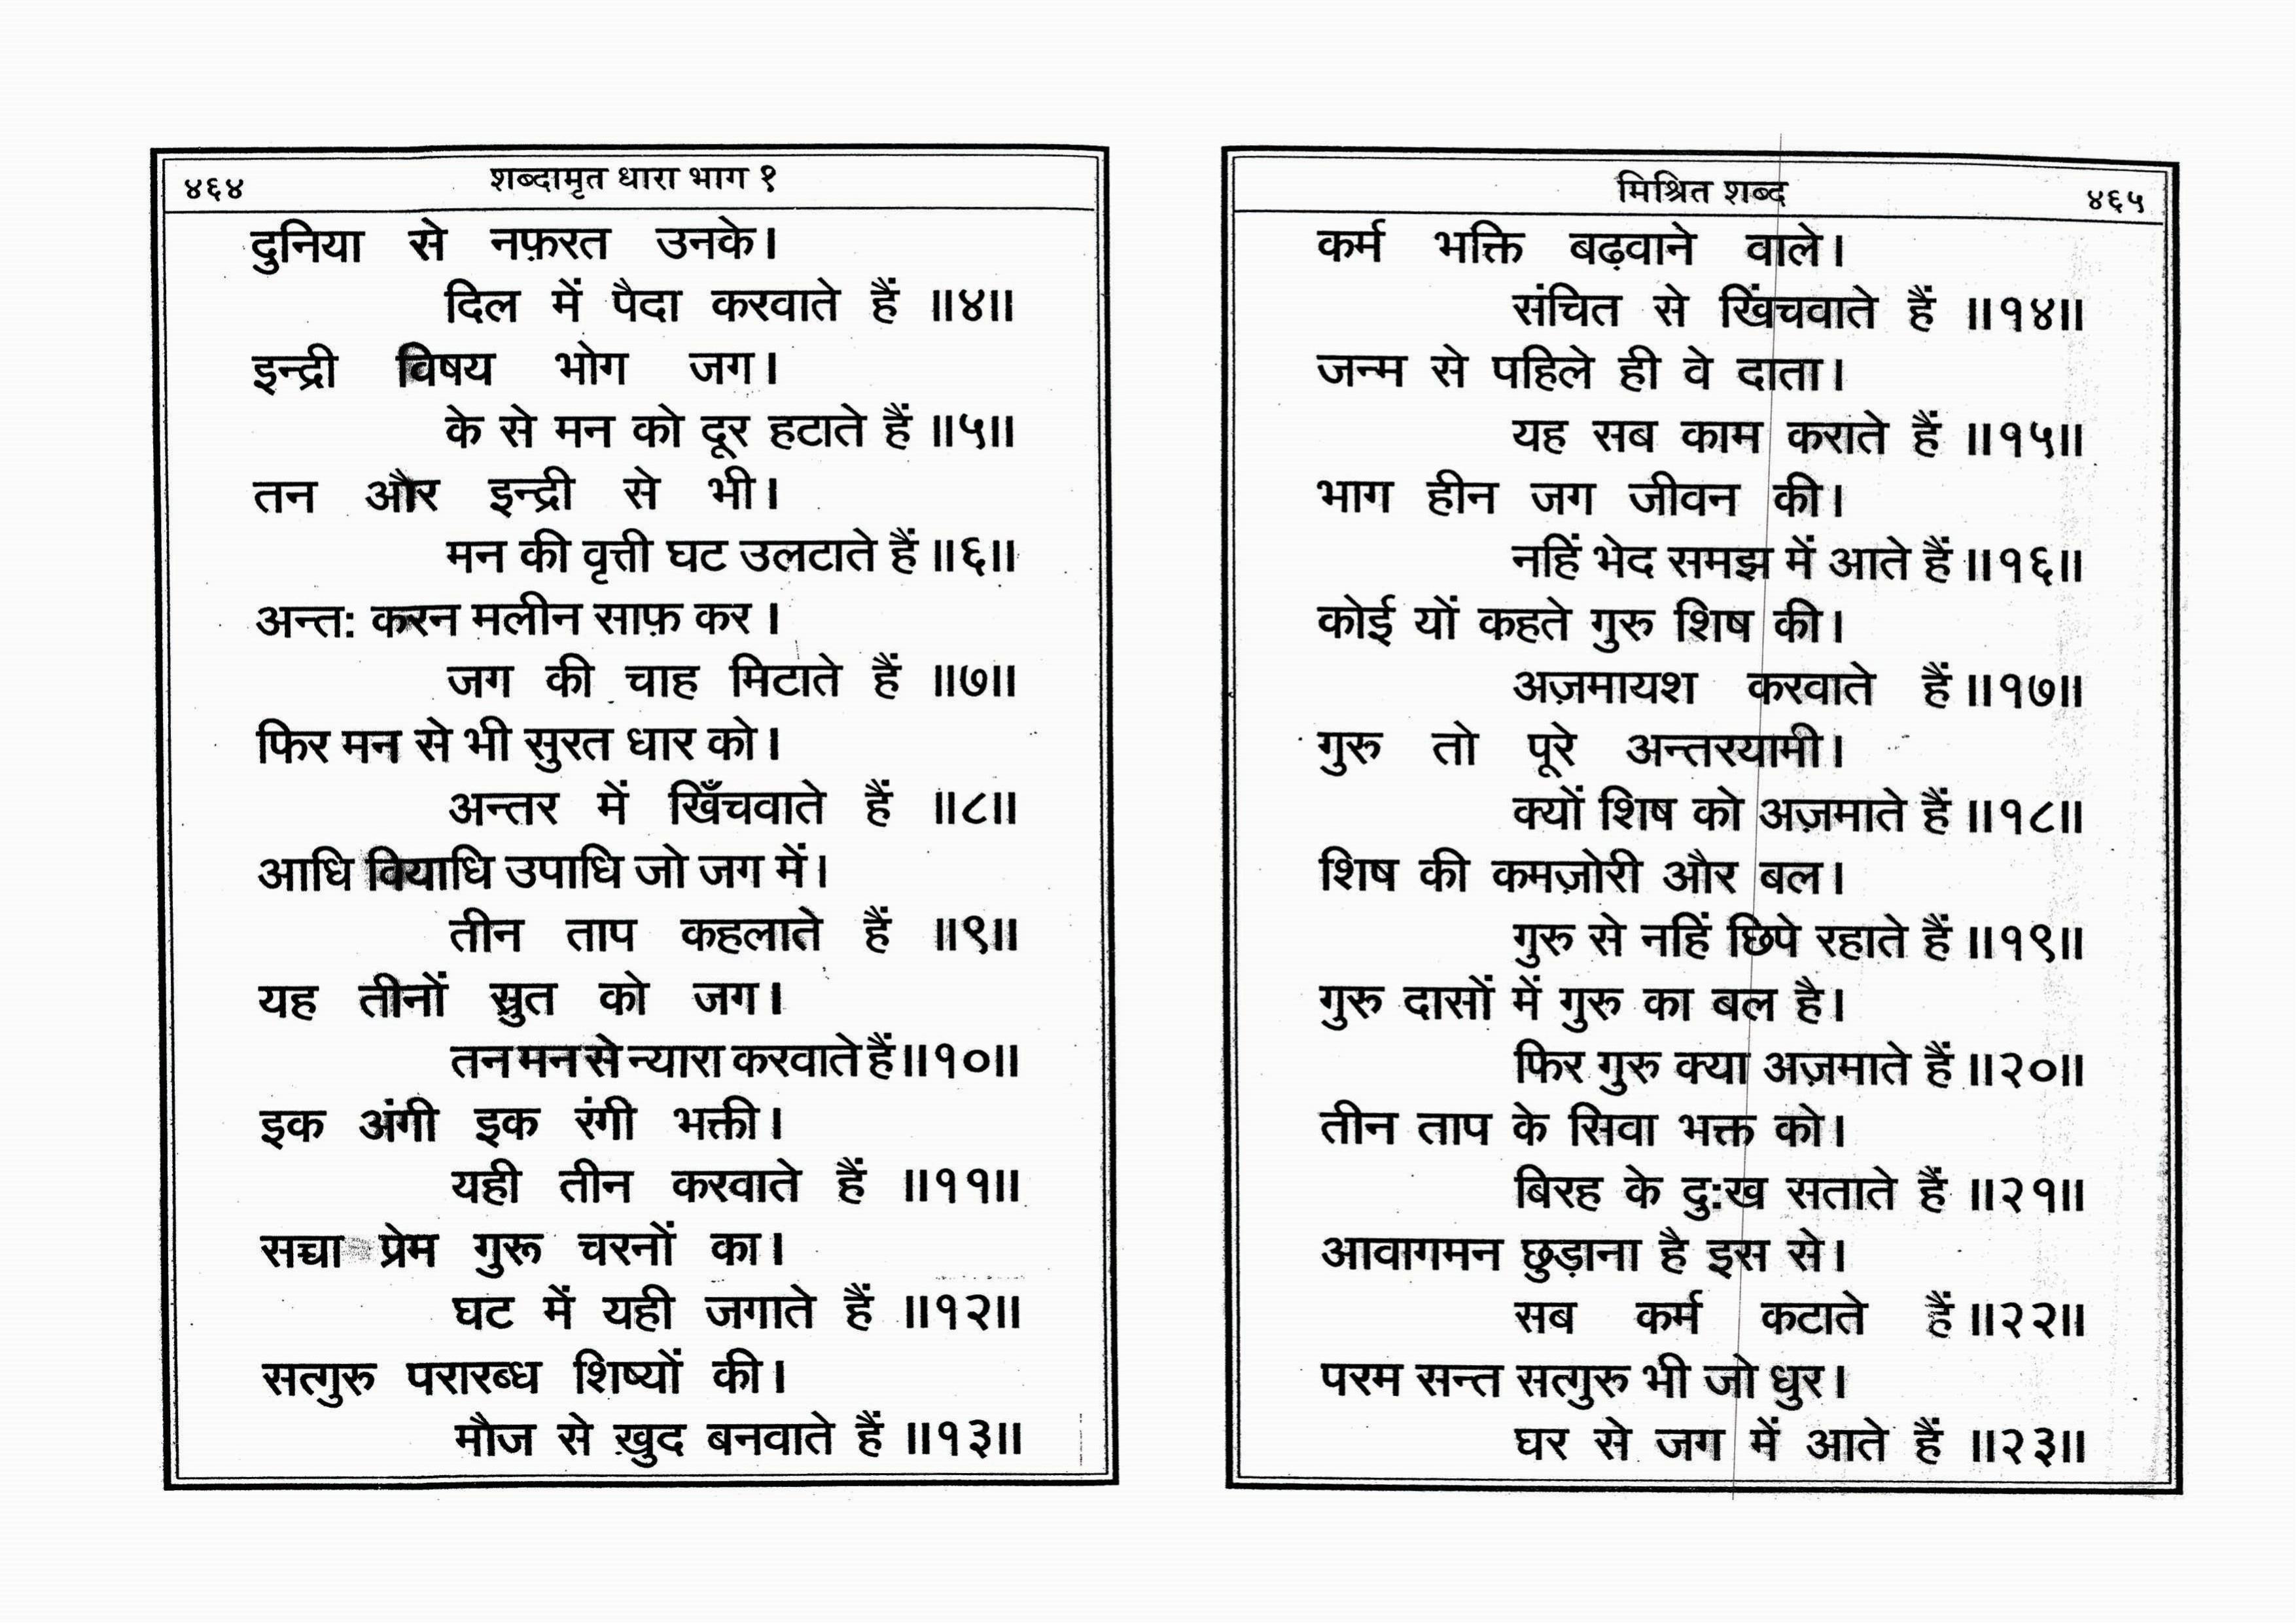 ४६४ शब्दामृत धारा भाग १
दुनिया से नफ़रत उनके।
दिल में पैदा करवाते हैं ॥४॥
इन्द्री विषय भोग जग।
के से मन को दूर हटाते हैं ॥५॥
तन और इन्द्री से भी।
मन की वृत्ती घट उलटाते हैं ॥६॥
अन्त: करन मलीन साफ़ कर ।
जग की चाह मिटाते हैं ॥७॥
फिर मन से भी सुरत धार को।
अन्तर में खिँचवाते हैं ॥८॥
आधि वियाधि उपाधि जो जग में।
तीन ताप कहलाते हैं ॥९॥
यह तीनों स्रुत को जग।
तन मन से न्यारा करवाते हैं ॥१०॥
इक अंगी इक रंगी भक्ती।
यही तीन करवाते हैं ॥११॥
सच्चा प्रेम गुरू चरनों का।
घट में यही जगाते हैं ॥१२॥
सतगुरु परारब्ध शिष्यों की।
मौज से ख़ुद बनवाते हैं ॥१३॥
मिश्रित शब्द ४६५
कर्म भक्ति बढ़वाने वाले।
संचित से खिंचवाते हैं ॥१४॥
जन्म से पहिले ही वे दाता।
यह सब काम कराते हैं ॥१५॥
भाग हीन जग जीवन की।
नहिं भेद समझ में आते हैं ॥१६॥
कोई यों कहते गुरु शिष की।
अज़मायश करवाते हैं ॥१७॥
गुरु तो पूरे अन्तरयामी।
क्यों शिष को अज़माते हैं ॥१८॥
शिष की कमज़ोरी और बल।
गुरु से नहिं छिपे रहाते हैं ॥१९॥
गुरु दासों में गुरु का बल है।
फिर गुरु क्या अज़माते हैं ॥२०॥
तीन ताप के सिवा भक्त को।
बिरह के दु:ख सताते हैं ॥२१॥
आवागमन छुड़ाना है इस से।
सब कर्म कटाते हैं ॥२२॥
परम सन्त सतगुरु भी जो धुर।
घर से जग में आते हैं ॥२३॥